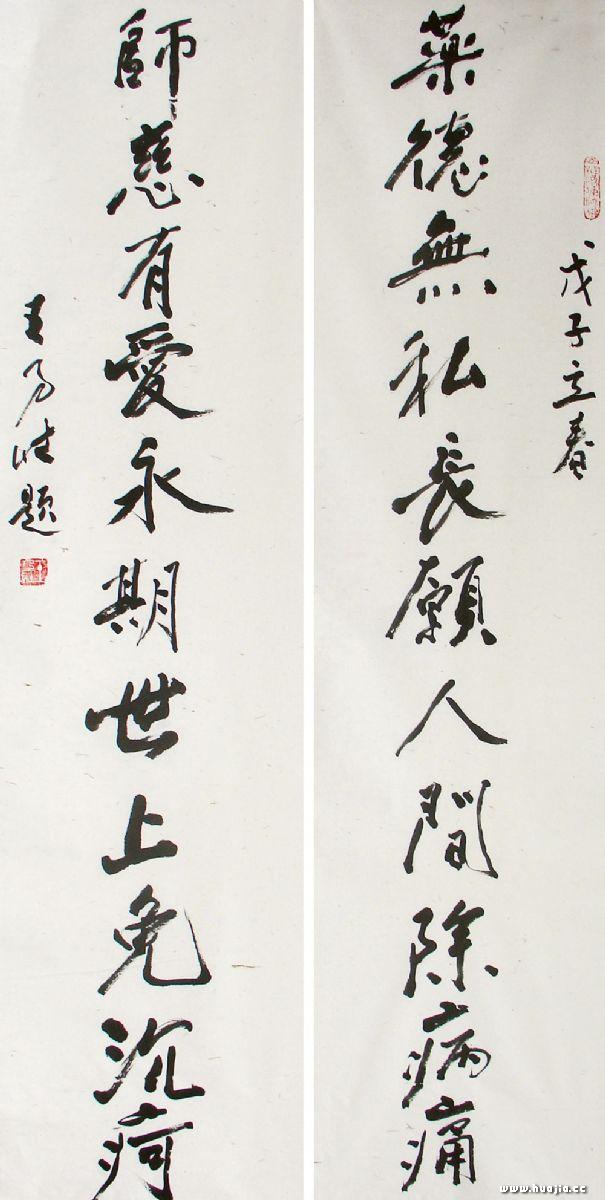 戊子立春
藥德無私長願人間除病痛
師慈有愛永期世上免沉疴
王乃壯題
www.huajia.cc